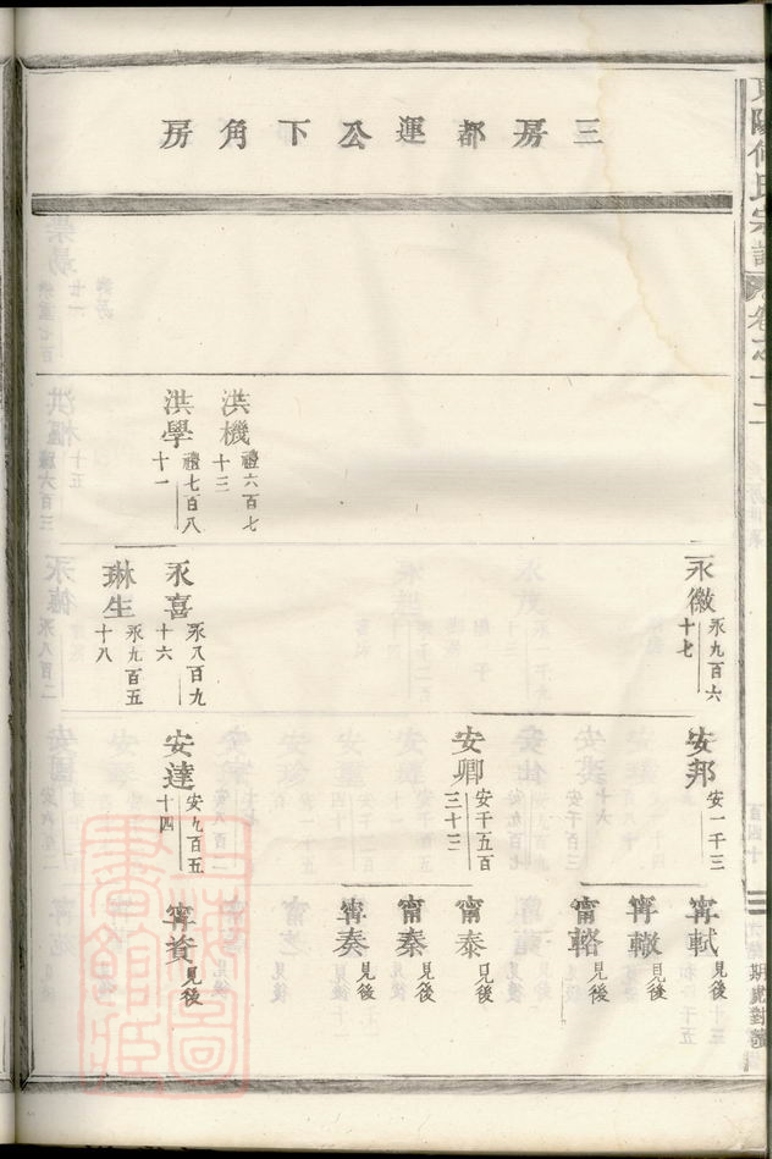 東陽何氏宗譜
卷之十二
三房都運公下角房
洪機
禮六百七
十三
洪學
禮七百八
十一
永徽
永九百六
十七
永喜
永八百九
十六
琳生
永九百五
十八
安邦
安一千三
安卿
安千五百
三十三
安達
安九百五
十四
甯軾
見後
甯轍
見後
甯輅
見後
甯泰
見後
甯秦
見後
甯奏
見後
甯資
見後